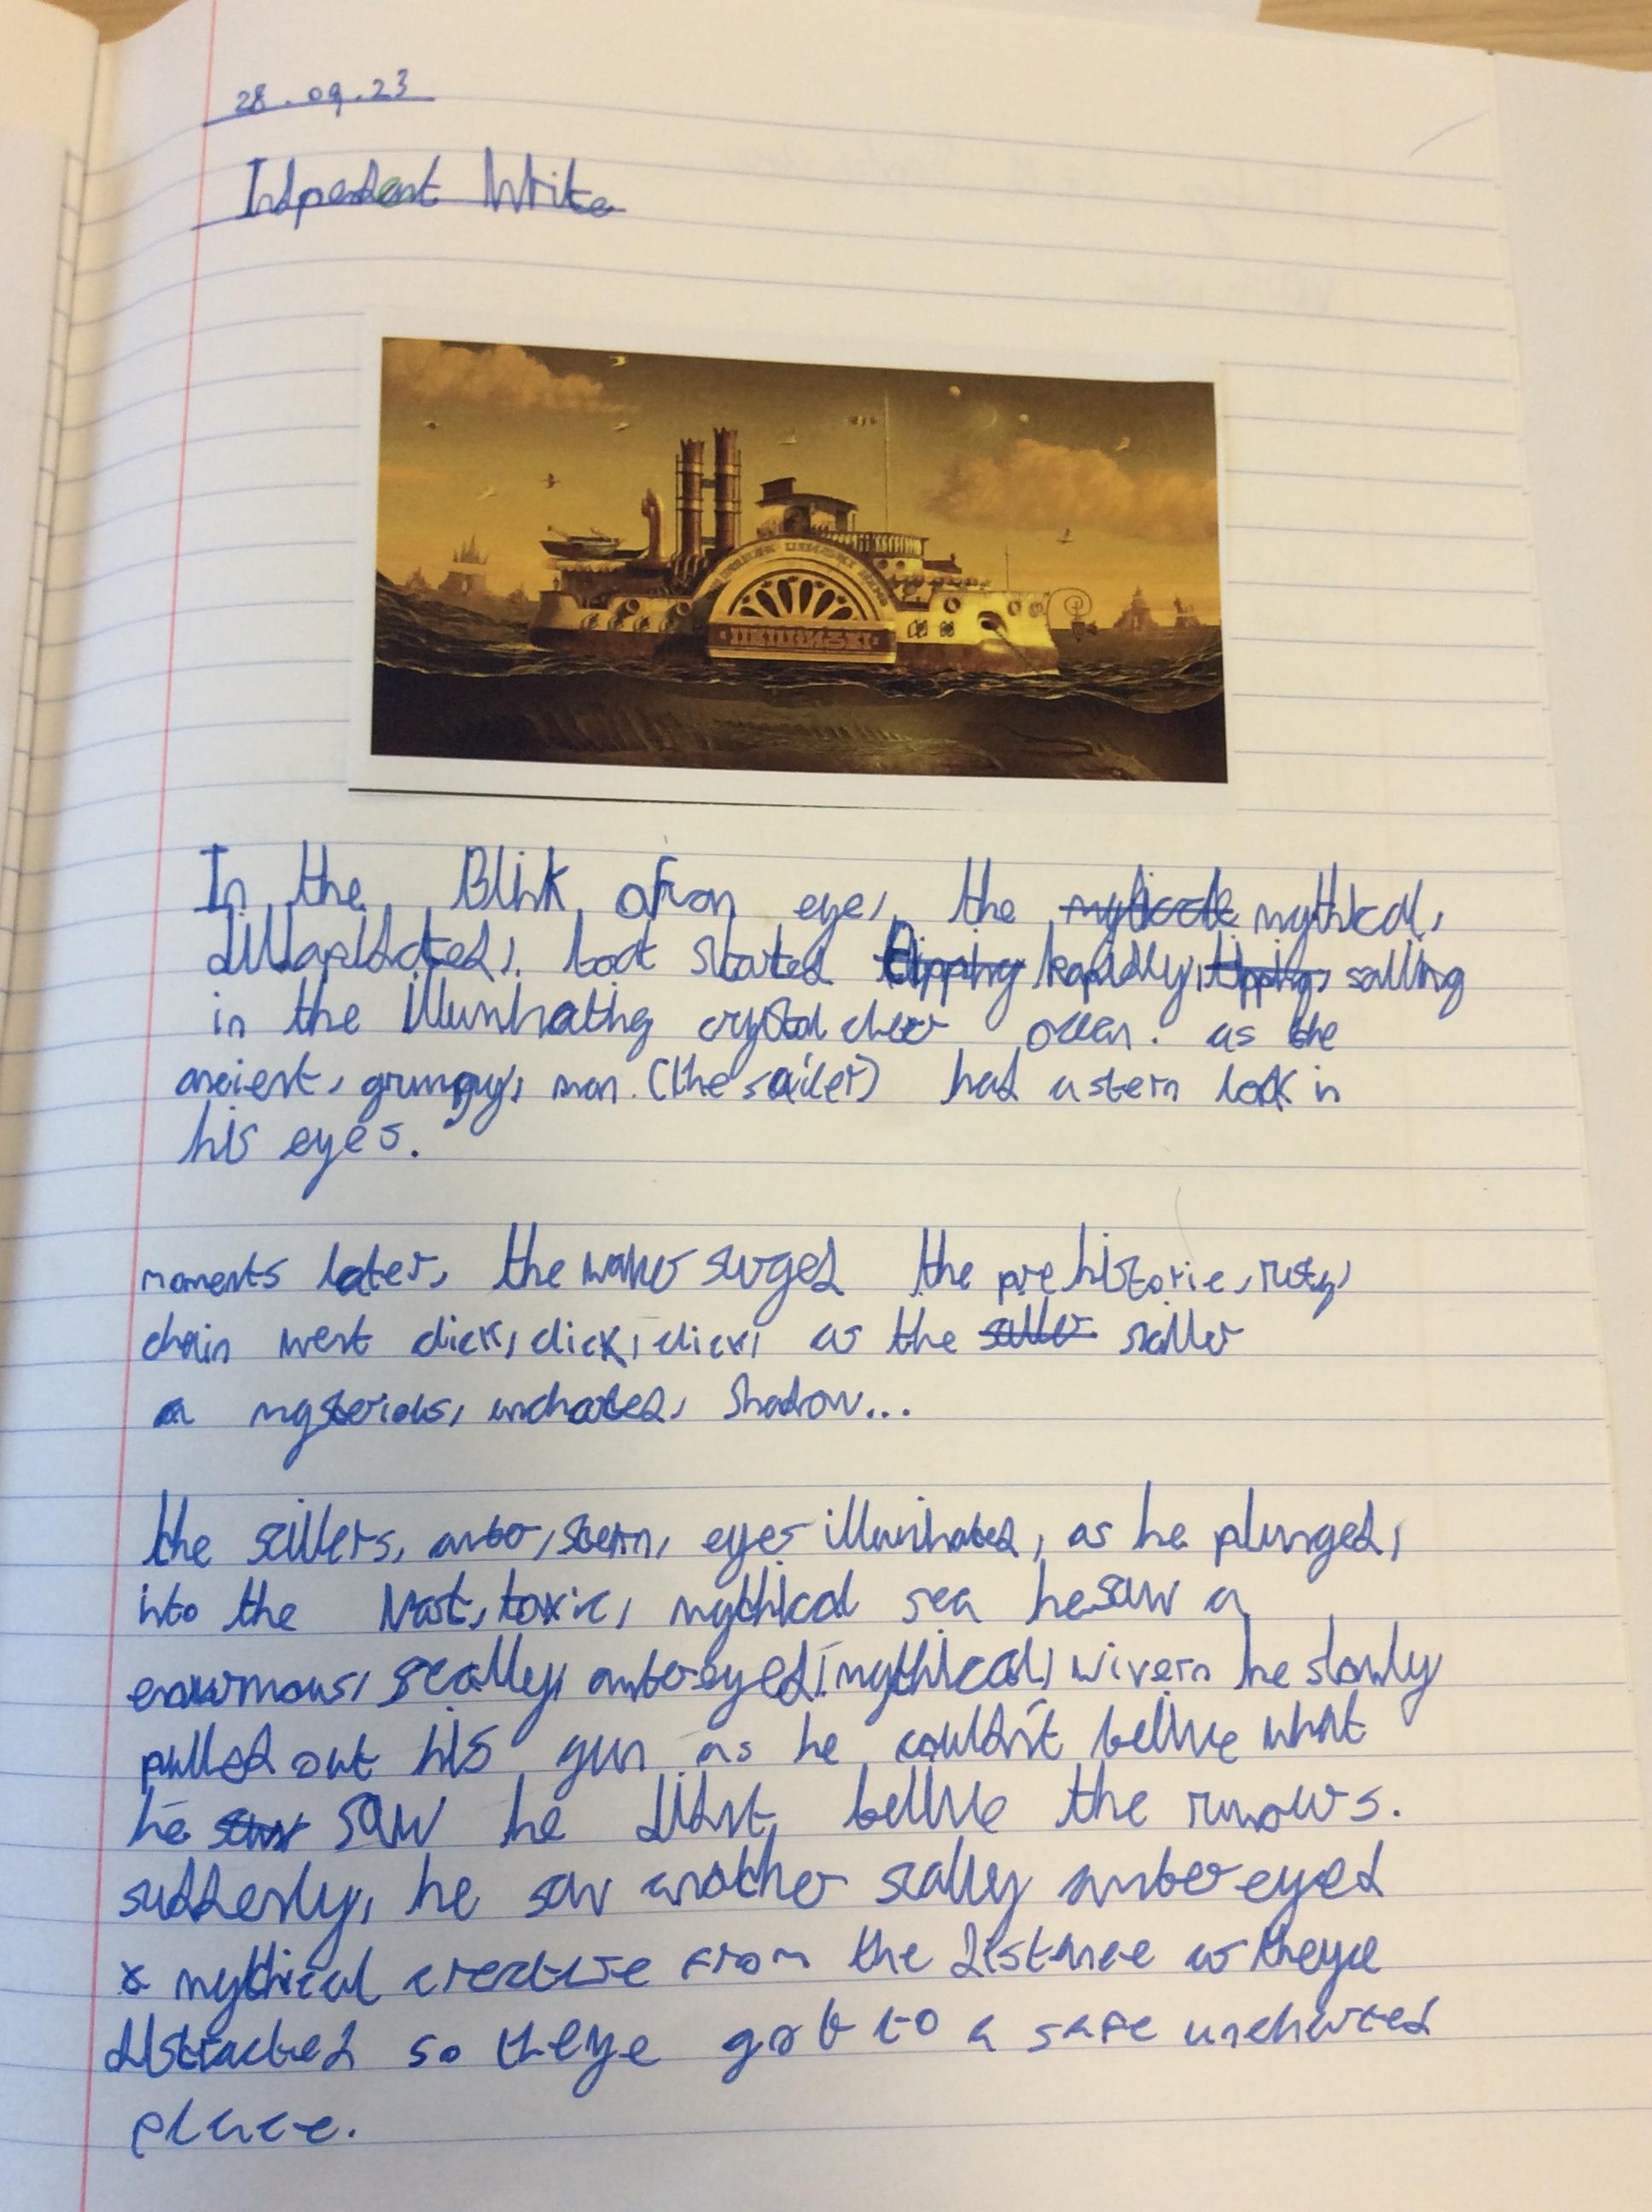 28.09.23
Indpendent Write
In the Blink of an eye, the mythical,
dillapidated, boat started Rapidly, sailing
in the illuminating crystal clear ocean. as the
ancient, grumpy, man. (the sailer) had a stern look in
his eyes.
moments later, the water surged the prehistoric, rusty,
chain went click, click, click, as the sailer
a mysterious, unchated, shadow...
the saillers, amber, stern, eyes illuminated, as he plunged,
into the vast, toxic, mythical sea he saw a
enourmous, scalley, amber eyed, mythical, wivern he slowly
pulled out his gun as he couldn't belive what
he saw he didnt belive the rumours.
suddenly, he saw another scally amber eyed
mythical creature from the distance as theye
distracted so theye got to a safe uncharted
place.